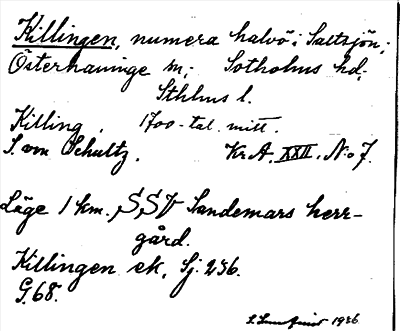 Killingen, numera halvö i Saltsjön;
Österhaninge sn; Sotholms hd;
Sthlms l.
Killing. 1700-tal. mitt.
S. von Schultz. Kr. A. XXII. No 7.
Läge 1 km. SSV Sandemars herr-
gård.
Killingen ek. Sj. 236.
G. 68.
1926